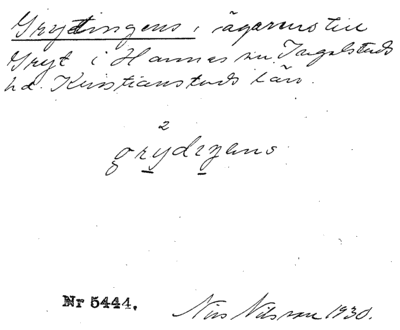 Grytingens, ägarens till
Gryt i Hannas sn Ingelstads
hd. Kristianstads län.
2
grydizens
Nr 5444.
Nils Nilsson 1930.